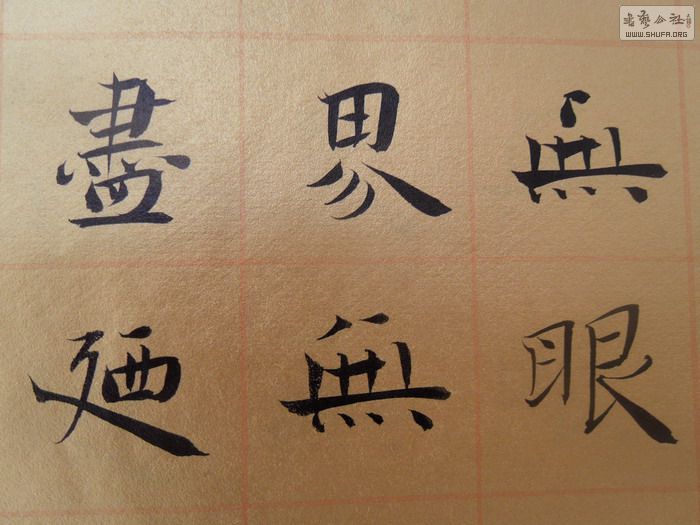 無眼
界無
盡廼
書藝公社
WWW.SHUFA.ORG